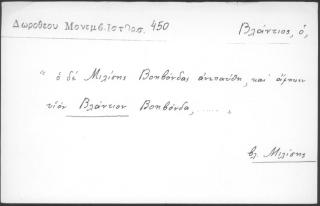 Δωροθέου Μονεμβ. Ἱστορ. 450
Βλάντιος, ὁ,
" ὁ δὲ Μιλίσης Βοηβόνδας ἀνεπαύθη, καὶ ἄφησεν
υἱὸν Βλάντιον Βοηβόνδα, ..... "
βλ. Μιλίσης